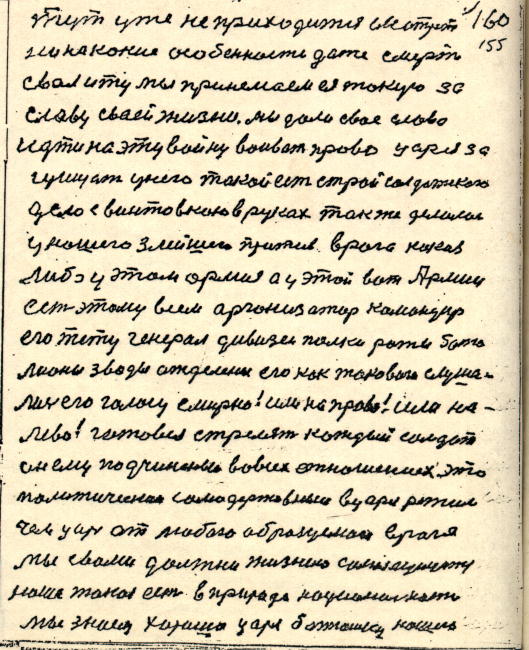 160
тут уже не приходится смотрет 155
ни на какие особенности даже смерть
свалиту мы принемаем ея такую за
славу сваей жизни. мы дали свое слово
идти на эту войну воиват право царя за
щищат у него такой ест строй солдатского
дело с винтовкою в руках также делилас
у нашего злейшего против врага какая
либо у этом армия а у этой вот Армии
ест этому всем арганизатор командир
его тету генерал дивизеи полки роты бата
лионы зводы отделении его как такового слуша-
лис его голосу смирно! или на право! или на-
лево! готовся стрелят каждый солдат
он ему подчиненый во всех отношениях. это
политическая самодержавныи царя режим
чем царя от любого образуемой врага
мы свами должны жизнию
наша такая ест в природа национальность
мы знаем хорошо царя батюшку нашего